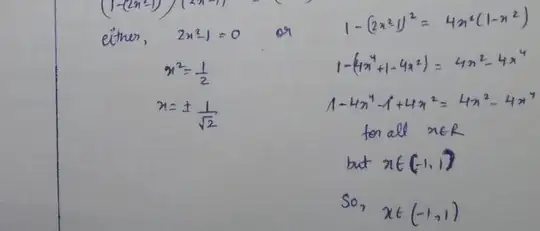 either, 2x²-1 = 0 or 1-(2x²-1)² = 4x²(1-x²)
x² = 1/2 1-(4x⁴+1-4x²) = 4x²-4x⁴
x = ± 1/√2 1-4x⁴-1+4x² = 4x²-4x⁴
for all x∈R
but x∈(-1,1)
So, x∈(-1,1)